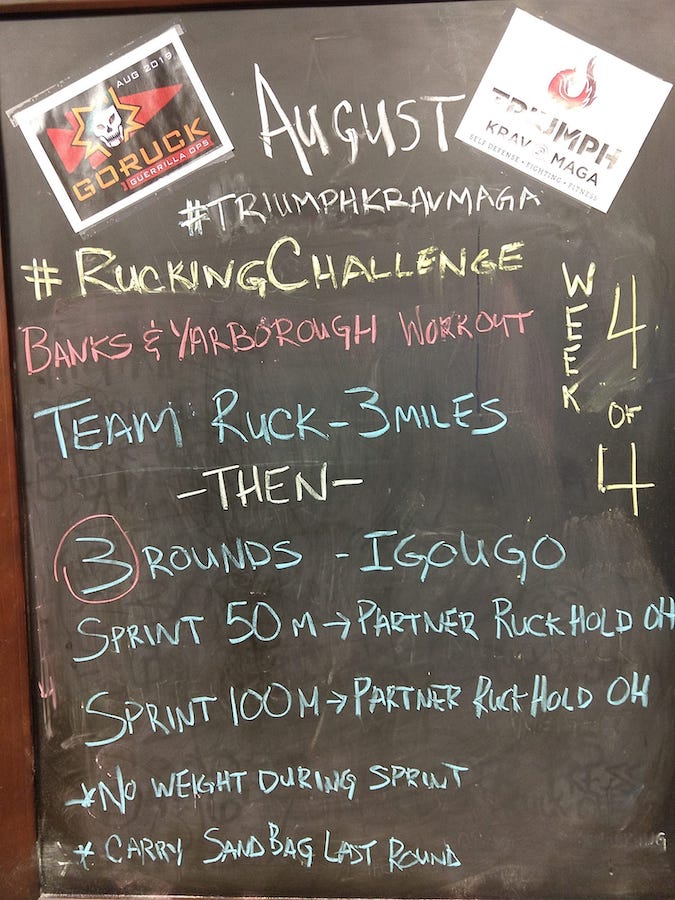 AUG 2019
GORUCK
GUERRILLA OPS
TRIUMPH
KRAV MAGA
SELF DEFENSE • FIGHTING • FITNESS
AUGUST
#TRIUMPHKRAVMAGA
#RUCKINGCHALLENGE
BANKS & YARBOROUGH WORKOUT
WEEK 4 OF 4
TEAM RUCK - 3 MILES
- THEN -
3 ROUNDS - IGOUGO
SPRINT 50 M → PARTNER RUCK HOLD OH
SPRINT 100 M → PARTNER RUCK HOLD OH
* NO WEIGHT DURING SPRINT
* CARRY SAND BAG LAST ROUND